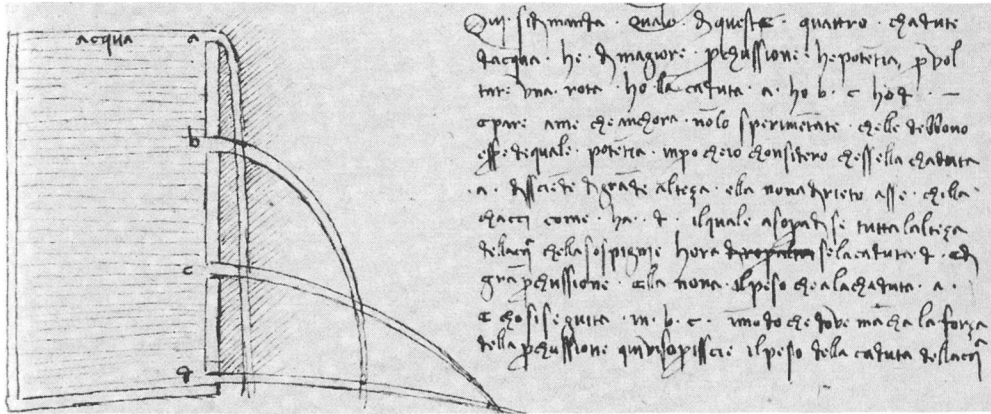 acqua a
b
c
d
Qui si dimanda · quale di queste · quattro · chadute
dacqua · he · di magiore · pchussione · he potētia, p vol
tare vna · rota · ho la caduta · a · ho b · c ho d · —
e pare ame che anchora · nōlo sperimētate · chelle debbono
esse dequale · potētia · inpo cheio chonsidero chessella chaduta
· a · dissciēde di grāde alteza · ella nona dirieto asse · chilla
chacci come · ha · d · il quale a sopa di se tutta lalteza
dellacq̄ chella sospignie hora se la caduta d · e di
grā pchussione · ella nona · il peso che a la chaduta · a ·
E chosi seguita · in · b · c · imodo che dove māca la forza
della pchussione quivi sopisscie il peso della caduta dellacq̄